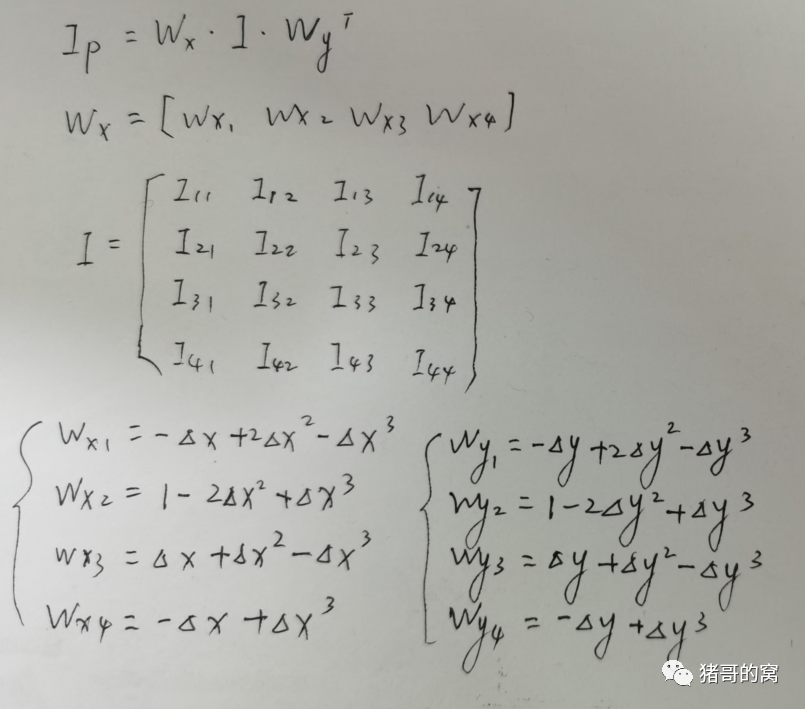 Ip = Wx · I · Wyᵀ
Wx = [Wx₁ Wx₂ Wx₃ Wx₄]
I = [I₁₁ I₁₂ I₁₃ I₁₄
I₂₁ I₂₂ I₂₃ I₂₄
I₃₁ I₃₂ I₃₃ I₃₄
I₄₁ I₄₂ I₄₃ I₄₄]
Wx₁ = -Δx + 2Δx² - Δx³
Wx₂ = 1 - 2Δx² + Δx³
Wx₃ = Δx + Δx² - Δx³
Wx₄ = -Δx + Δx³
Wy₁ = -Δy + 2Δy² - Δy³
Wy₂ = 1 - 2Δy² + Δy³
Wy₃ = Δy + Δy² - Δy³
Wy₄ = -Δy + Δy³
猪哥的窝